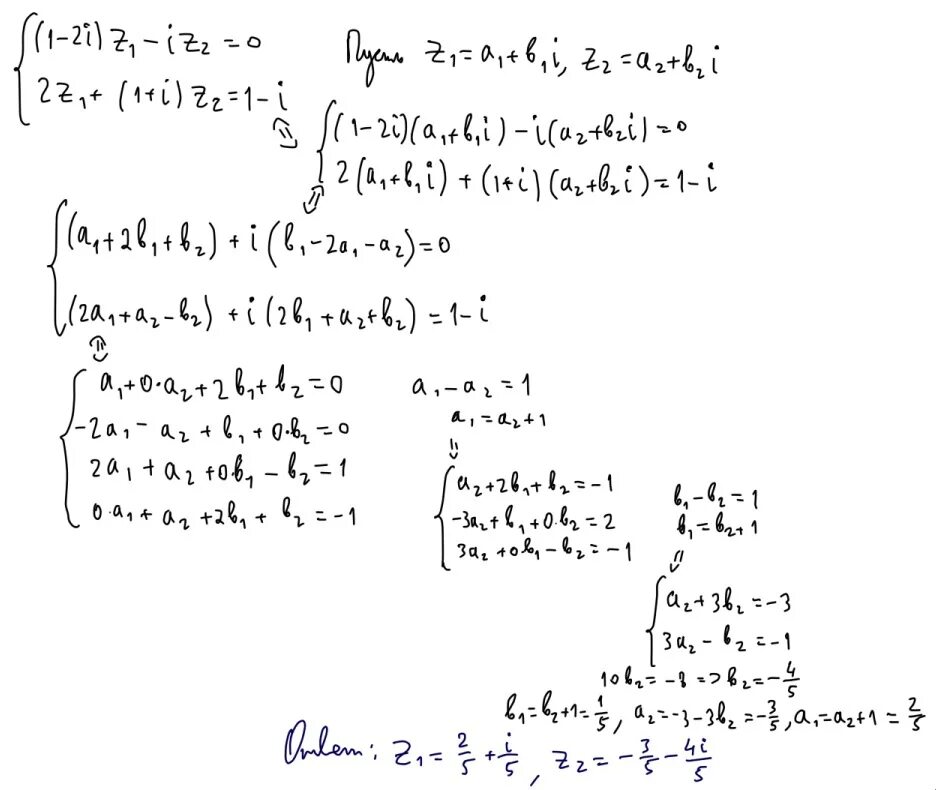 (1-2i) z₁ - i z₂ = 0
2z₁ + (1+i) z₂ = 1-i
Пусть z₁ = a₁ + b₁i, z₂ = a₂ + b₂i
(1-2i)(a₁+b₁i) - i(a₂+b₂i) = 0
2(a₁+b₁i) + (1+i)(a₂+b₂i) = 1-i
(a₁+2b₁+b₂) + i(b₁-2a₁-a₂) = 0
(2a₁+a₂-b₂) + i(2b₁+a₂+b₂) = 1-i
a₁+0·a₂+2b₁+b₂=0
-2a₁-a₂+b₁+0·b₂=0
2a₁+a₂+0b₁-b₂=1
0·a₁+a₂+2b₁+b₂=-1
a₁-a₂=1
a₁=a₂+1
a₂+2b₁+b₂=-1
-3a₂+b₁+0·b₂=2
3a₂+0b₁-b₂=-1
b₁-b₂=1
b₁=b₂+1
a₂+3b₂=-3
3a₂-b₂=-1
10b₂=-8 => b₂=-4/5
b₁=b₂+1=1/5, a₂=-3-3b₂=-3/5, a₁=a₂+1=2/5
Ответ: z₁=2/5+i/5, z₂=-3/5-4i/5